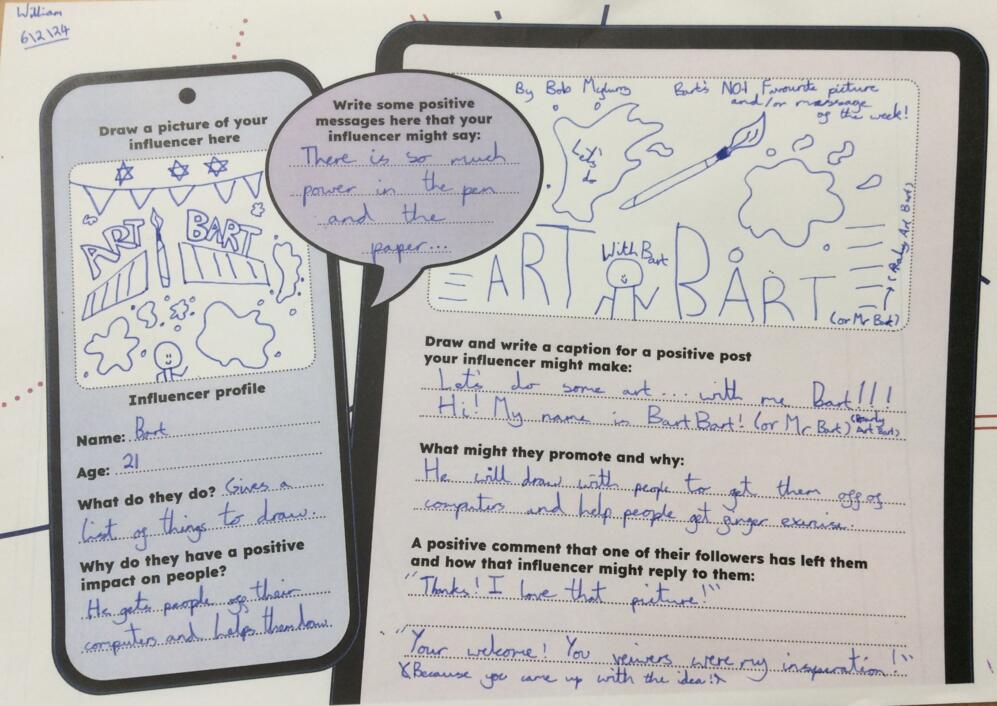 William
6\2\24
Draw a picture of your
influencer here
ART BART
Influencer profile
Name: Bart
Age: 21
What do they do? Gives a
list of things to draw.
Why do they have a positive
impact on people?
He gets people off their
computers and helps them draw.
Write some positive
messages here that your
influencer might say:
There is so much
power in the pen
and the
paper...
By Bob
Bart's NOT Favourite picture
and/or message
of the week!
Let's
do
ART With Bart BART
(or Mr Bart)
(Barty Art Bart)
Draw and write a caption for a positive post
your influencer might make:
Let's do some art... with me Bart!!!
Hi! My name is Bart Bart! (or Mr Bart) (Barty Art Bart)
What might they promote and why:
He will draw with people to get them off of
computers and help people get finger exersise.
A positive comment that one of their followers has left them
and how that influencer might reply to them:
"Thanks! I love that picture!"
"Your welcome! You veiwers were my insperation!"
*Because you came up with the idea!*